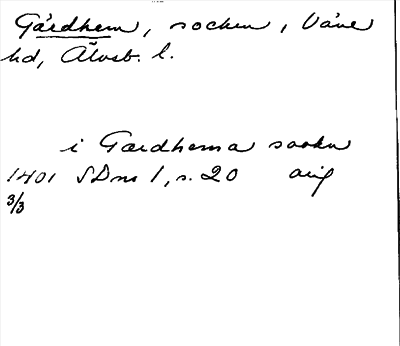 Gärdhem, socken, Väne
hd, Älvsb. l.
i Gærdhema sookn
1401 SDns 1, s. 20 orig
3/3